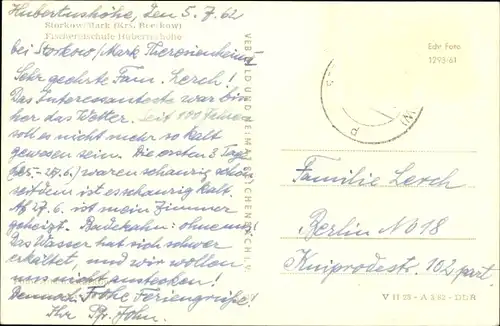 Hubertushöhe, den 5. 7. 62
Storkow/Mark (Krs. Beeskow)
Fischereischule Hubertushöhe
bei Storkow/Mark, Theresienheim
Sehr geehrte Fam. Lerch!
Das Interessanteste war bis-
her das Wetter. Seit 100 Jahren
soll es nicht mehr so kalt
gewesen sein. Die ersten 3 Tage
(25.-27.6.) waren schaurig schön
seitdem ist es schaurig kalt.
Ab 27.6. ist mein Zimmer
geheizt. Badekahn: ohne mich!
Das Wasser hat sich schwer
erkältet, und wir wollen
uns nicht anstecken!
Dennoch: Frohe Feriengrüße!
Ihr Pfr. John.
VEB BILD UND HEIMAT REICHENBACH I. V.
Edv Foto
1293/61
Familie Lerch
Berlin NO 18
Kniprodestr. 102 part.
V 11 28 - A 3/62 - DDR